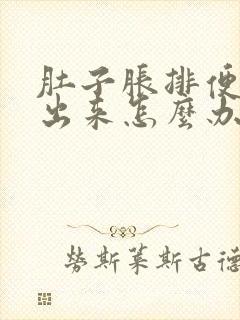 肚子脹排便
出来怎麼办
勞斯莱斯古德